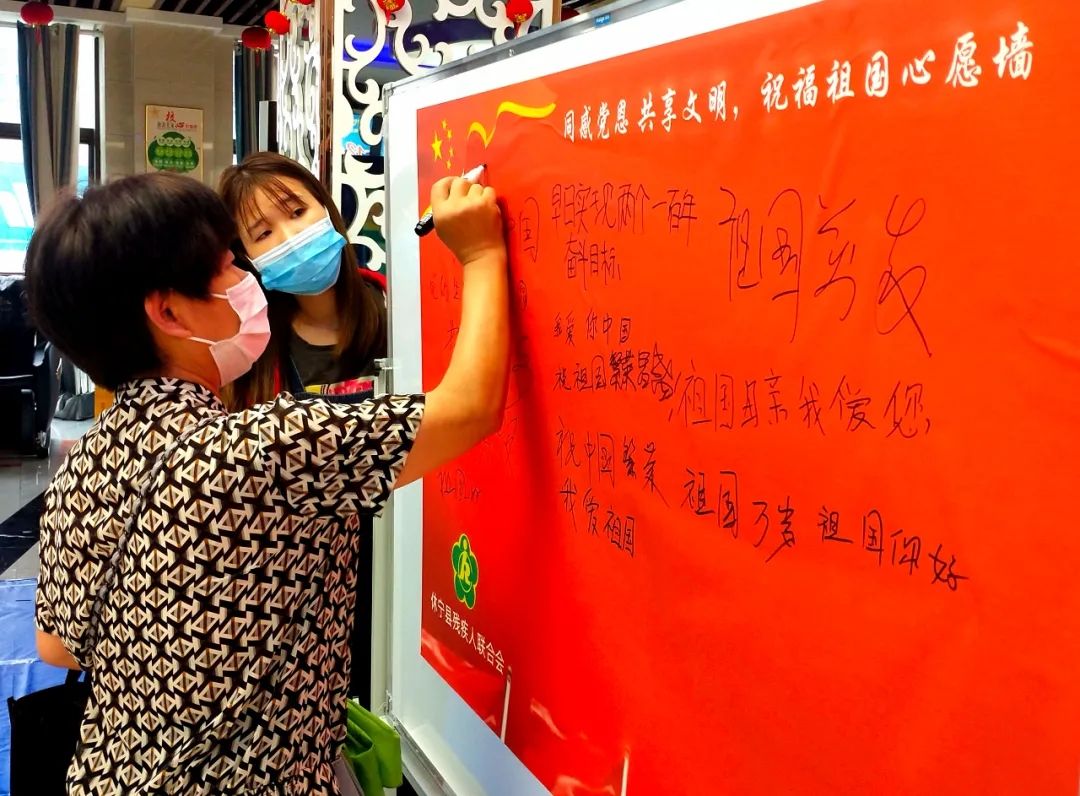 同感党恩共享文明，祝福祖国心愿墙
早日实现两个一百年
奋斗目标
祖国万岁
我爱你中国
祝祖国繁荣昌盛
祖国母亲我爱您
祝中国繁荣
祖国万岁
祖国你好
我爱祖国
怀宁县残疾人联合会